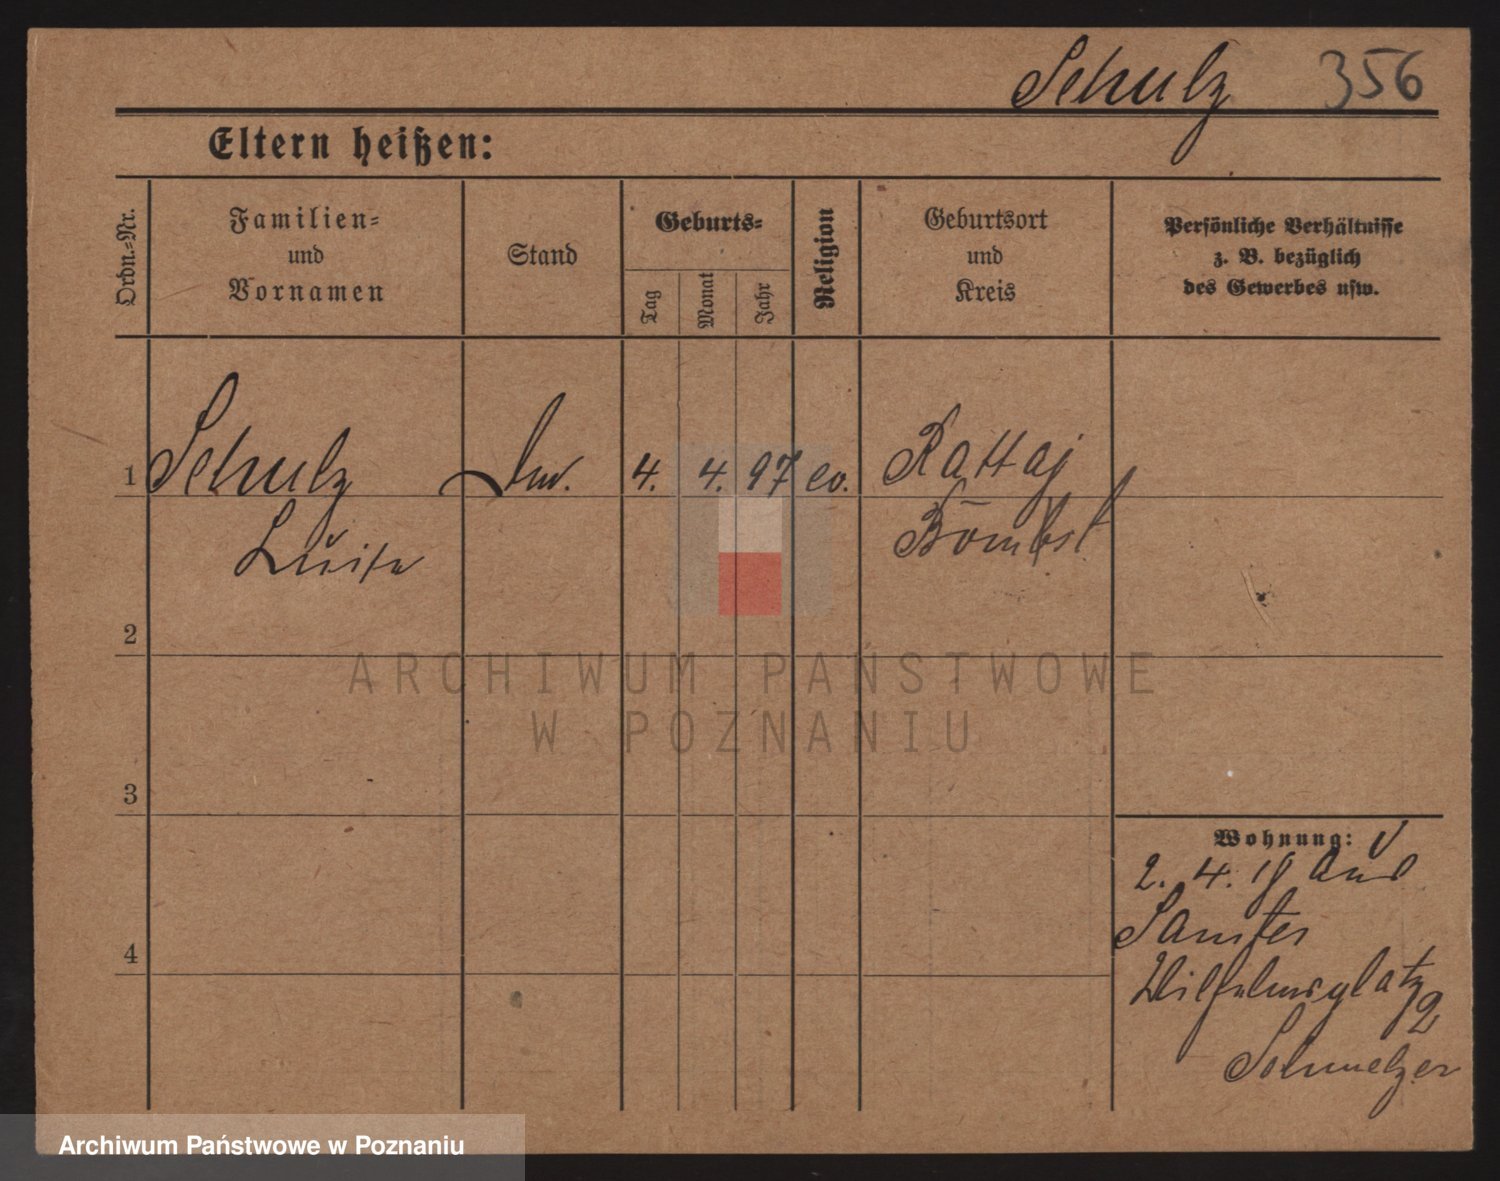 Schulz 356
Eltern heißen:
Ordn.=Nr.
Familien=
und
Vornamen
Stand
Geburts=
Tag
Monat
Jahr
Religion
Geburtsort
und
Kreis
Persönliche Verhältnisse
z. B. bezüglich
des Gewerbes usw.
1 Schulz 4. 4. 97 ev. Rattaj
Luise Bomst
2
3
4
Wohnung:
2. 4. 18 aus
Samter
Wilhelmsplatz
2
Schmelzer
ARCHIWUM PAŃSTWOWE
W POZNANIU
Archiwum Państwowe w Poznaniu